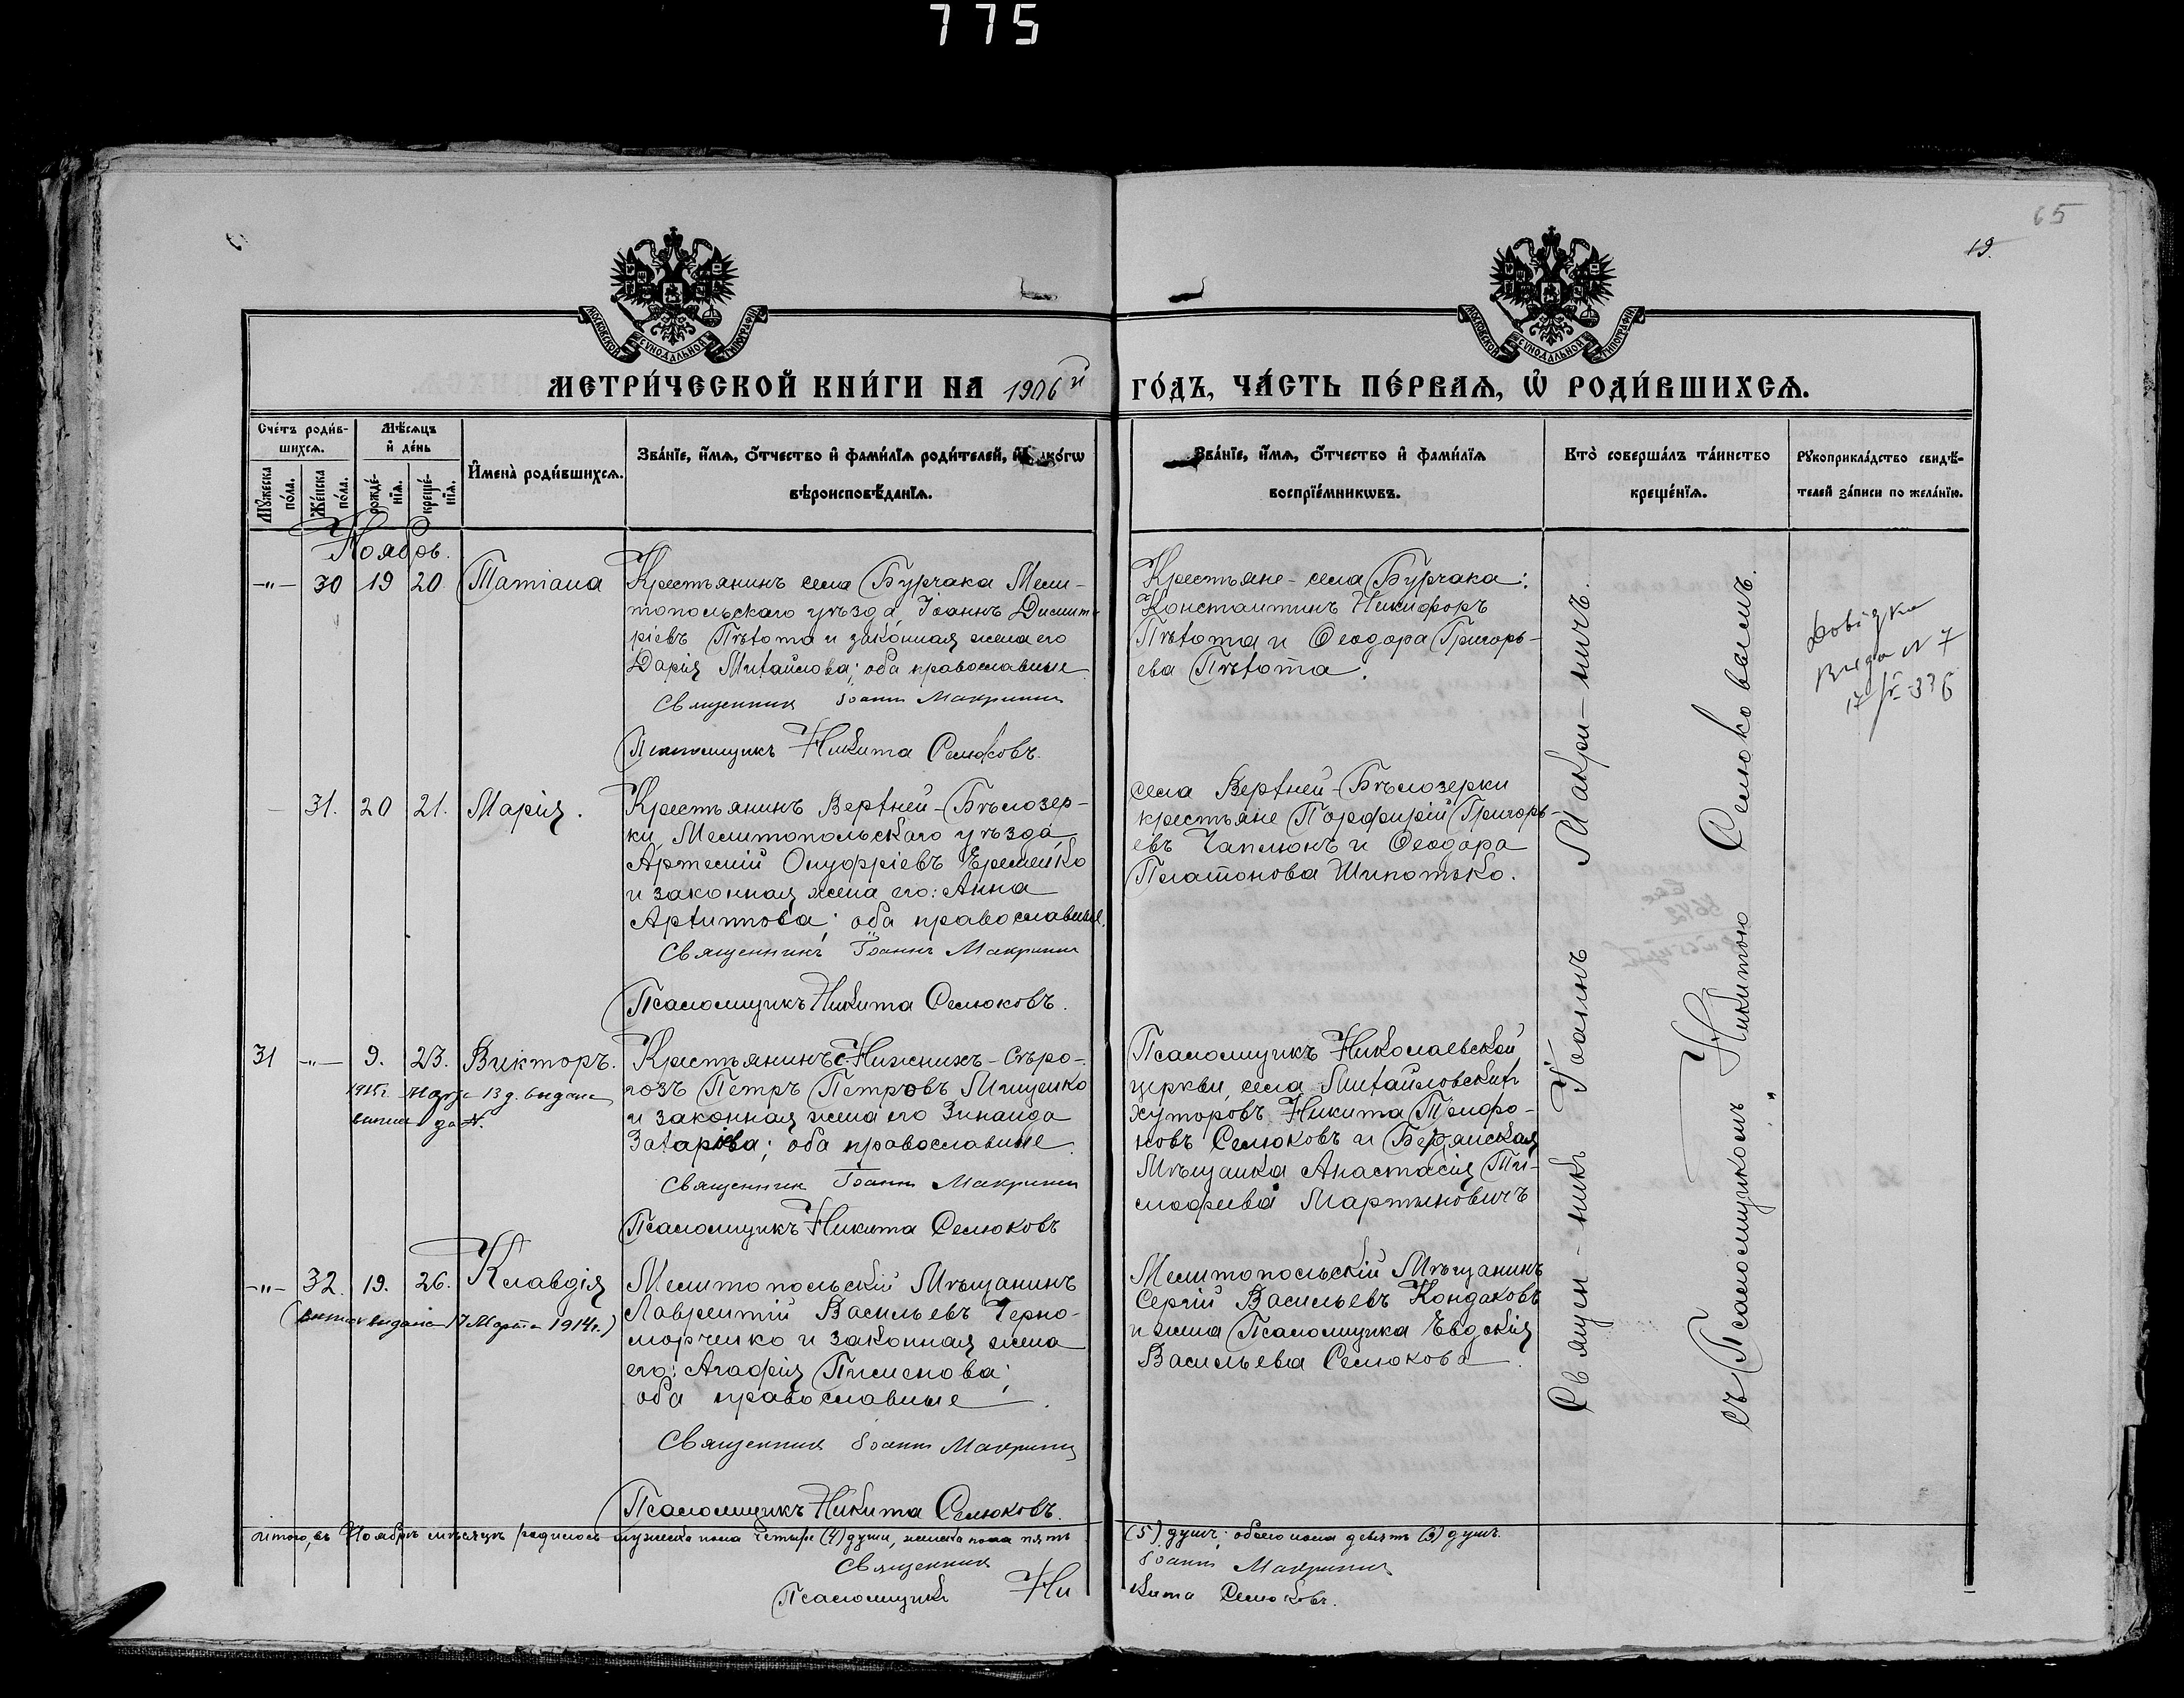 775
65
19.
МОСКОВСКОЙ СУНОДАЛЬНОЙ ТИПОГРАФІИ
МОСКОВСКОЙ СУНОДАЛЬНОЙ ТИПОГРАФІИ
МЕТРИ́ЧЕСКОЙ КНИ́ГИ НА 1906й ГО́ДЪ, ЧА́СТЬ ПЕ́РВАѦ, Ѡ҆ РОДИ́ВШИХСѦ.
Сче́тъ роди́в-
шихсѧ.
Мѣ́сѧцъ
и҆ де́нь
И҆́мена̀ роди́вшихсѧ.
Зва́нїе, и҆́мѧ, ѻ҆́тчество и҆ фами́лїѧ роди́телей, и҆ како́гѡ
вѣроисповѣ́данїѧ.
Зва́нїе, и҆́мѧ, ѻ҆́тчество и҆ фами́лїѧ
воспрїе́мникѡвъ.
Кто̀ соверша́лъ та́инство
креще́нїѧ.
Рꙋкоприкла́дство свидѣ́-
телей за́писи по жела́нїю.
Мꙋ́жеска по́ла.
Же́нска по́ла.
рожде́-нїѧ.
креще́-нїѧ.
Ноябрь.
-"- 30 19 20. Татіана
Крестьянинъ села Бурчака Мели-
топольскаго уѣзда, Іоаннъ Димит-
ріевъ Пѣхота и законная жена его
Дарія Михайлова; оба православные
Священник Іоанн Макринич
Псаломщикъ Никита Селюковъ.
Крестьяне - села Бурчака:
Константинъ Никифоръ
Пѣхота и Ѳеодора Григорь-
ева Пѣхота.
Довідка
видан № 7
- 31. 20 21. Марія.
Крестьянинъ Верхней-Бѣлозер-
ки, Мелитопольскаго уѣзда,
Артемій Онуфріевъ Еременко
и законная жена его: Анна
Архиппова; оба православные.
Священникъ Іоаннъ Макринич
Псаломщикъ Никита Селюковъ.
села Верхней-Бѣлозерки
крестьяне Порфирій Григорь-
евъ Чаплюнъ и Ѳеодора
Платонова Шипотько.
31 -"- 9. 23. Викторъ.
1915г. Марта 13 д. выдана
Крестьянинъ с. Нижнихъ-Сѣро-
гозъ Петръ Петровъ Мищенко
и законная жена его Зинаида
Захаріева; оба православные.
Священник Іоанн Макринич
Псаломщикъ Никита Селюковъ
Псаломщикъ Николаевской
церкви, села Михайловскихъ
хуторовъ Никита Трифо-
новъ Селюковъ и Бердянская
Мѣщанка Анастасія Ти-
моѳеева Мартыновичъ
-"- 32. 19. 26. Клавдія
(выпись выдана 17 Марта 1914г.)
Мелитопольскій Мѣщанинъ
Лаврентій Васильевъ Черно-
морченко и законная жена
его: Агафія Пименова;
оба православные.
Священник Іоанн Макринич
Псаломщикъ Никита Селюковъ.
Мелитопольскій Мѣщанинъ
Сергій Васильевъ Кондаковъ
и жена Псаломщика Евдокія
Васильева Селюкова.
Священ-никъ Іоаннъ Макри-ничъ.
съ Псаломщикомъ Никитою Селюковымъ.
Итого, въ Ноябрѣ мѣсяцѣ родилось мужеска пола четыре (4) души, женска пола пять (5) душъ; обоего пола девять (9) душъ.
Священник Іоанн Макринич
Псаломщикъ Никита Селюковъ.